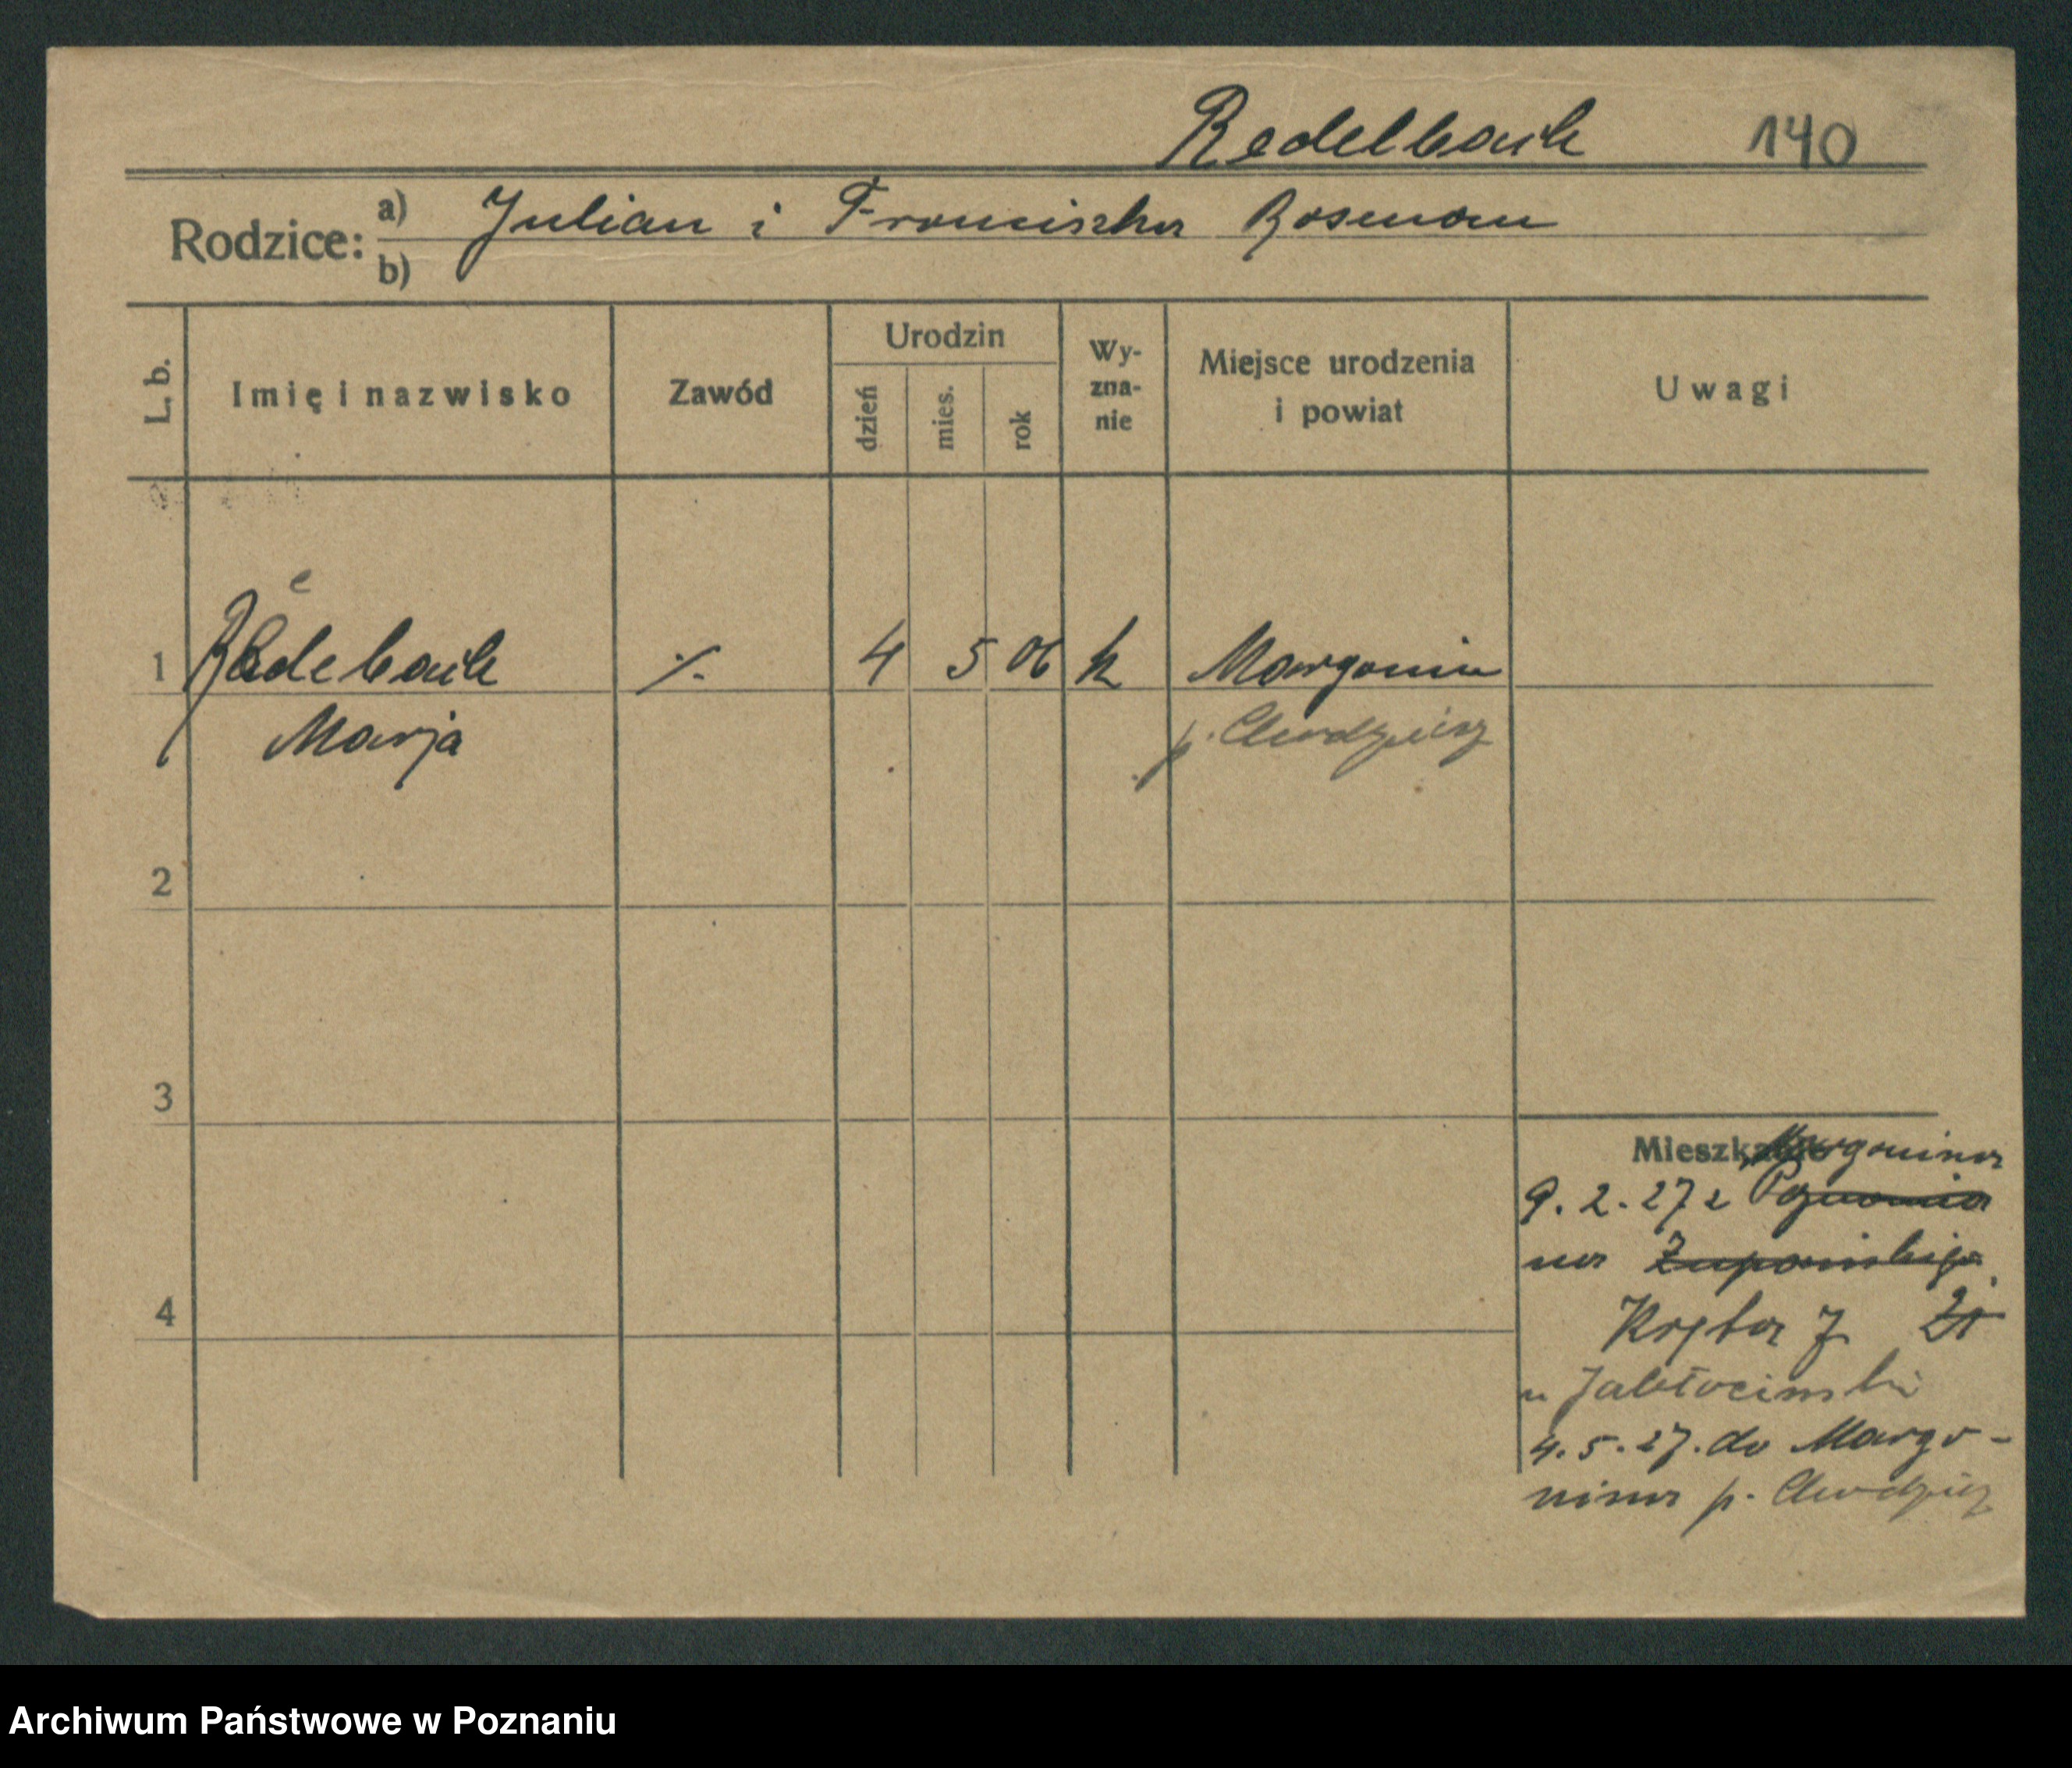 Redelbach 140
Rodzice: a) Julian i Franciszka Rosenau
b)
L. b. Imię i nazwisko Zawód Urodzin dzień mies. rok Wy-zna-nie Miejsce urodzenia i powiat Uwagi
e
1 Redelbach ٪ 4 5 06 k Margonin
Marja p. Chodzież
2
3
Mieszka Margonina
9.2.27 z Poznania
na Żupańskiego
4
Kręta 7 21
u Jabłocińskі
4.5.27. do Margo-
nina p. Chodzież
Archiwum Państwowe w Poznaniu